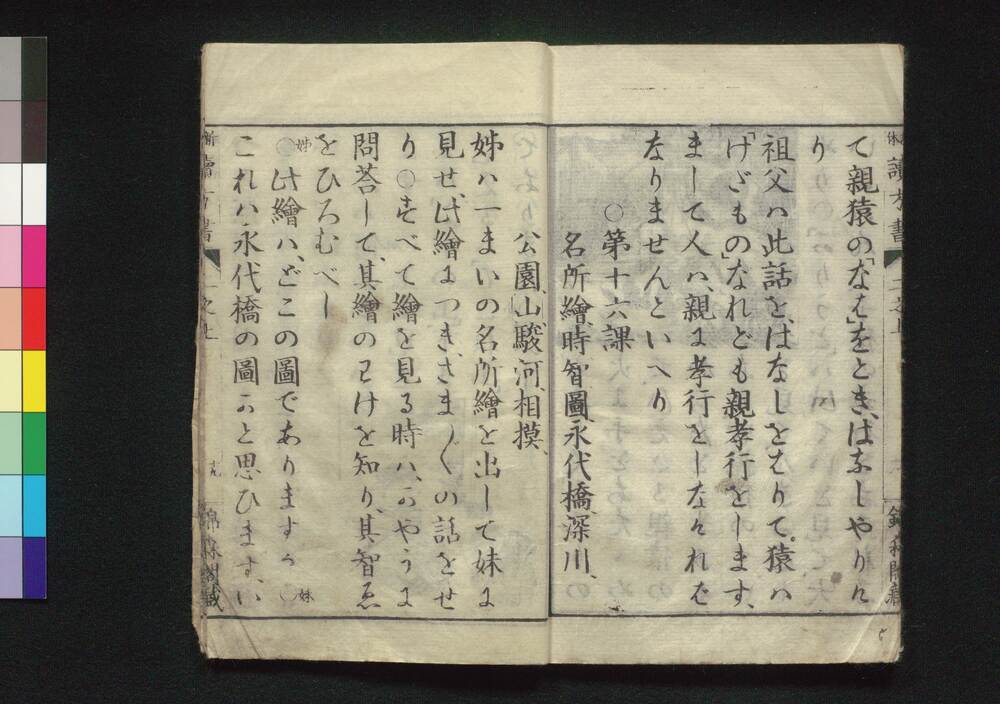 て親猿の「なは」をとき、はなしやりけ
り
祖父ハ此話を、はなしをはりて、猿ハ
「けだもの」なれども親孝行をします、
まして人ハ、親に孝行をしなけれバ
なりませんといへり
○第十六課
名所繪、時、智、圖、永代橋、深川、
公園、山、駿河、相摸、
姊ハ一まいの名所繪を出して妹に
見せ、此繪につき、さま〴〵の話をせ
り○すべて繪を見る時ハ、かやうに
問荅して、其繪のわけを知り、其智ゑ
をひろむべし
姊○此繪ハ、どこの圖でありますか 妹○
これハ永代橋の圖かと思ひます、い
讀方書 二之上